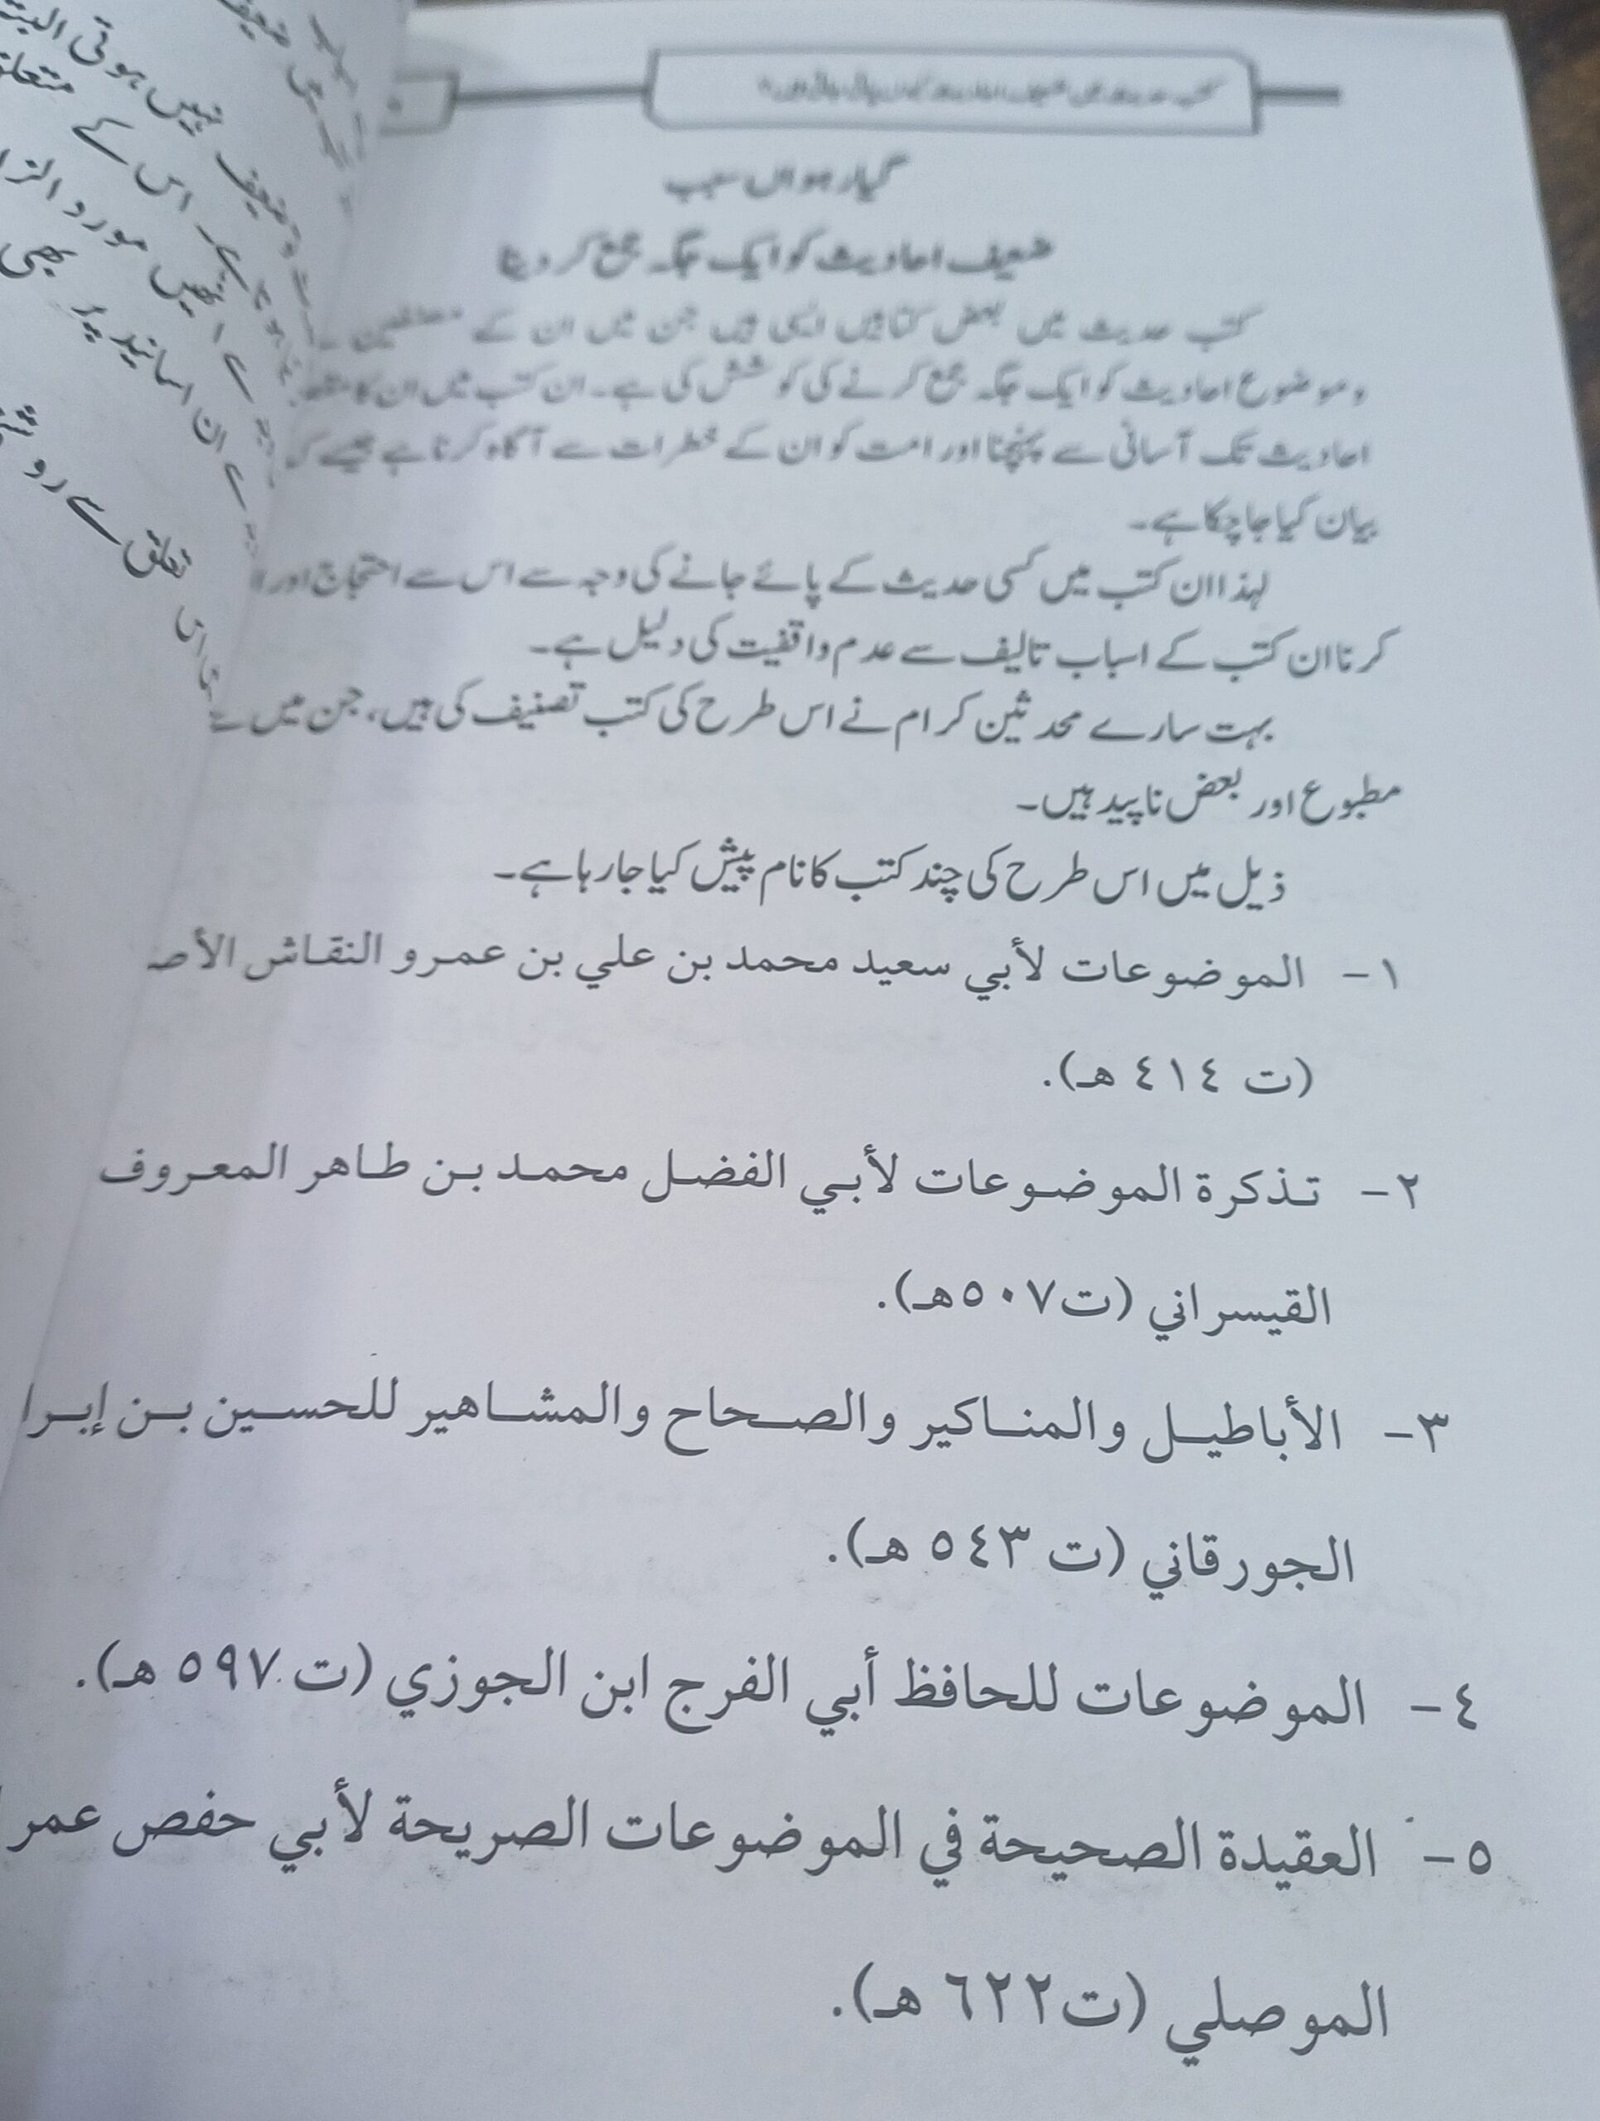 کتب حدیث میں ضعیف احادیث کیوں پائی جاتی ہیں؟
گیارہواں سبب
ضعیف احادیث کو ایک جگہ جمع کر دینا
کتب حدیث میں بعض کتابیں ایسی ہیں جن میں ان کے مصنفین نے
وموضوع احادیث کو ایک جگہ جمع کرنے کی کوشش کی ہے۔ ان کتب میں ان کا مقصد
احادیث تک آسانی سے پہنچنا اور امت کو ان کے خطرات سے آگاہ کرنا ہے جیسے کہ
بیان کیا جا چکا ہے۔
لہذا ان کتب میں کسی حدیث کے پائے جانے کی وجہ سے اس سے احتجاج اور
کرنا ان کتب کے اسباب تالیف سے عدم واقفیت کی دلیل ہے۔
بہت سارے محدثین کرام نے اس طرح کی کتب تصنیف کی ہیں، جن میں سے
مطبوع اور بعض ناپید ہیں۔
ذیل میں اس طرح کی چند کتب کا نام پیش کیا جا رہا ہے۔
١- الموضوعات لأبي سعيد محمد بن علي بن عمرو النقاش الأصـ
(ت ٤١٤ هـ).
٢- تذكرة الموضوعات لأبي الفضل محمد بن طاهر المعروف
القيسراني (ت٥٠٧هـ).
٣- الأباطيل والمناكير والصحاح والمشاهير للحسين بن إبرا
الجورقاني (ت ٥٤٣ هـ).
٤- الموضوعات للحافظ أبي الفرج ابن الجوزي (ت ٥٩٧ هـ).
٥- العقيدة الصحيحة في الموضوعات الصريحة لأبي حفص عمر
الموصلي (ت٦٢٢ هـ).